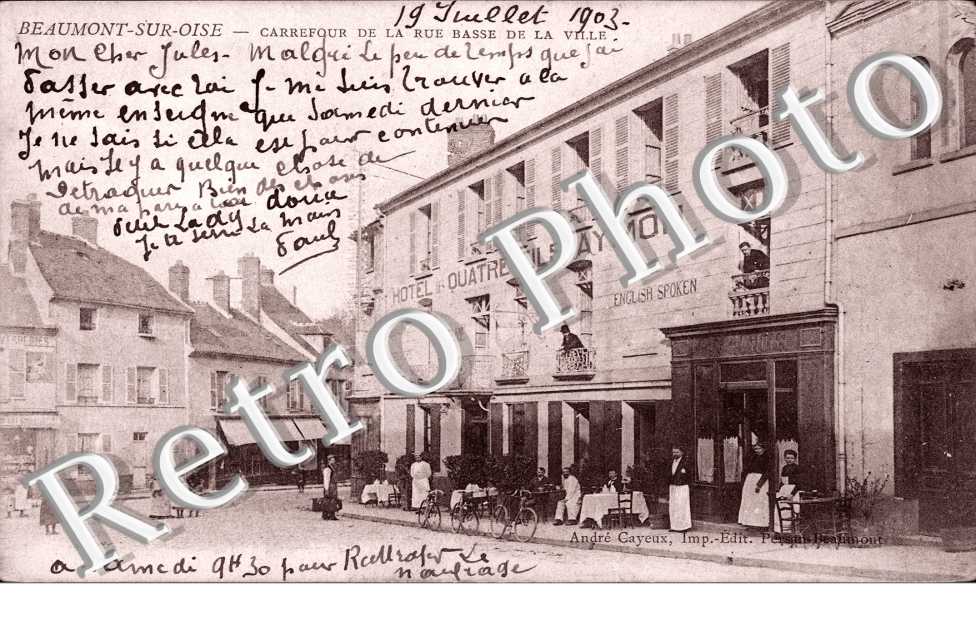 19 Juillet 1903.
BEAUMONT-SUR-OISE — CARREFOUR DE LA RUE BASSE DE LA VILLE
Mon Cher Jules - Malgré le peu de temps que j'ai
passer avec toi je me suis trouver a la
même enseigne que Samedi dernier
Je ne sais si cela est pour continuer
mais il y a quelque chose de
Detraquer Bien des choses
de ma part a
Lady
Je te serre la main
Paul
HOTEL DES QUATRE FILS AYMON
ENGLISH SPOKEN
Retro Photo
André Cayeux, Imp.-Édit. Persan-Beaumont
a Samedi 9H30 pour Rattraper Le
naufrage